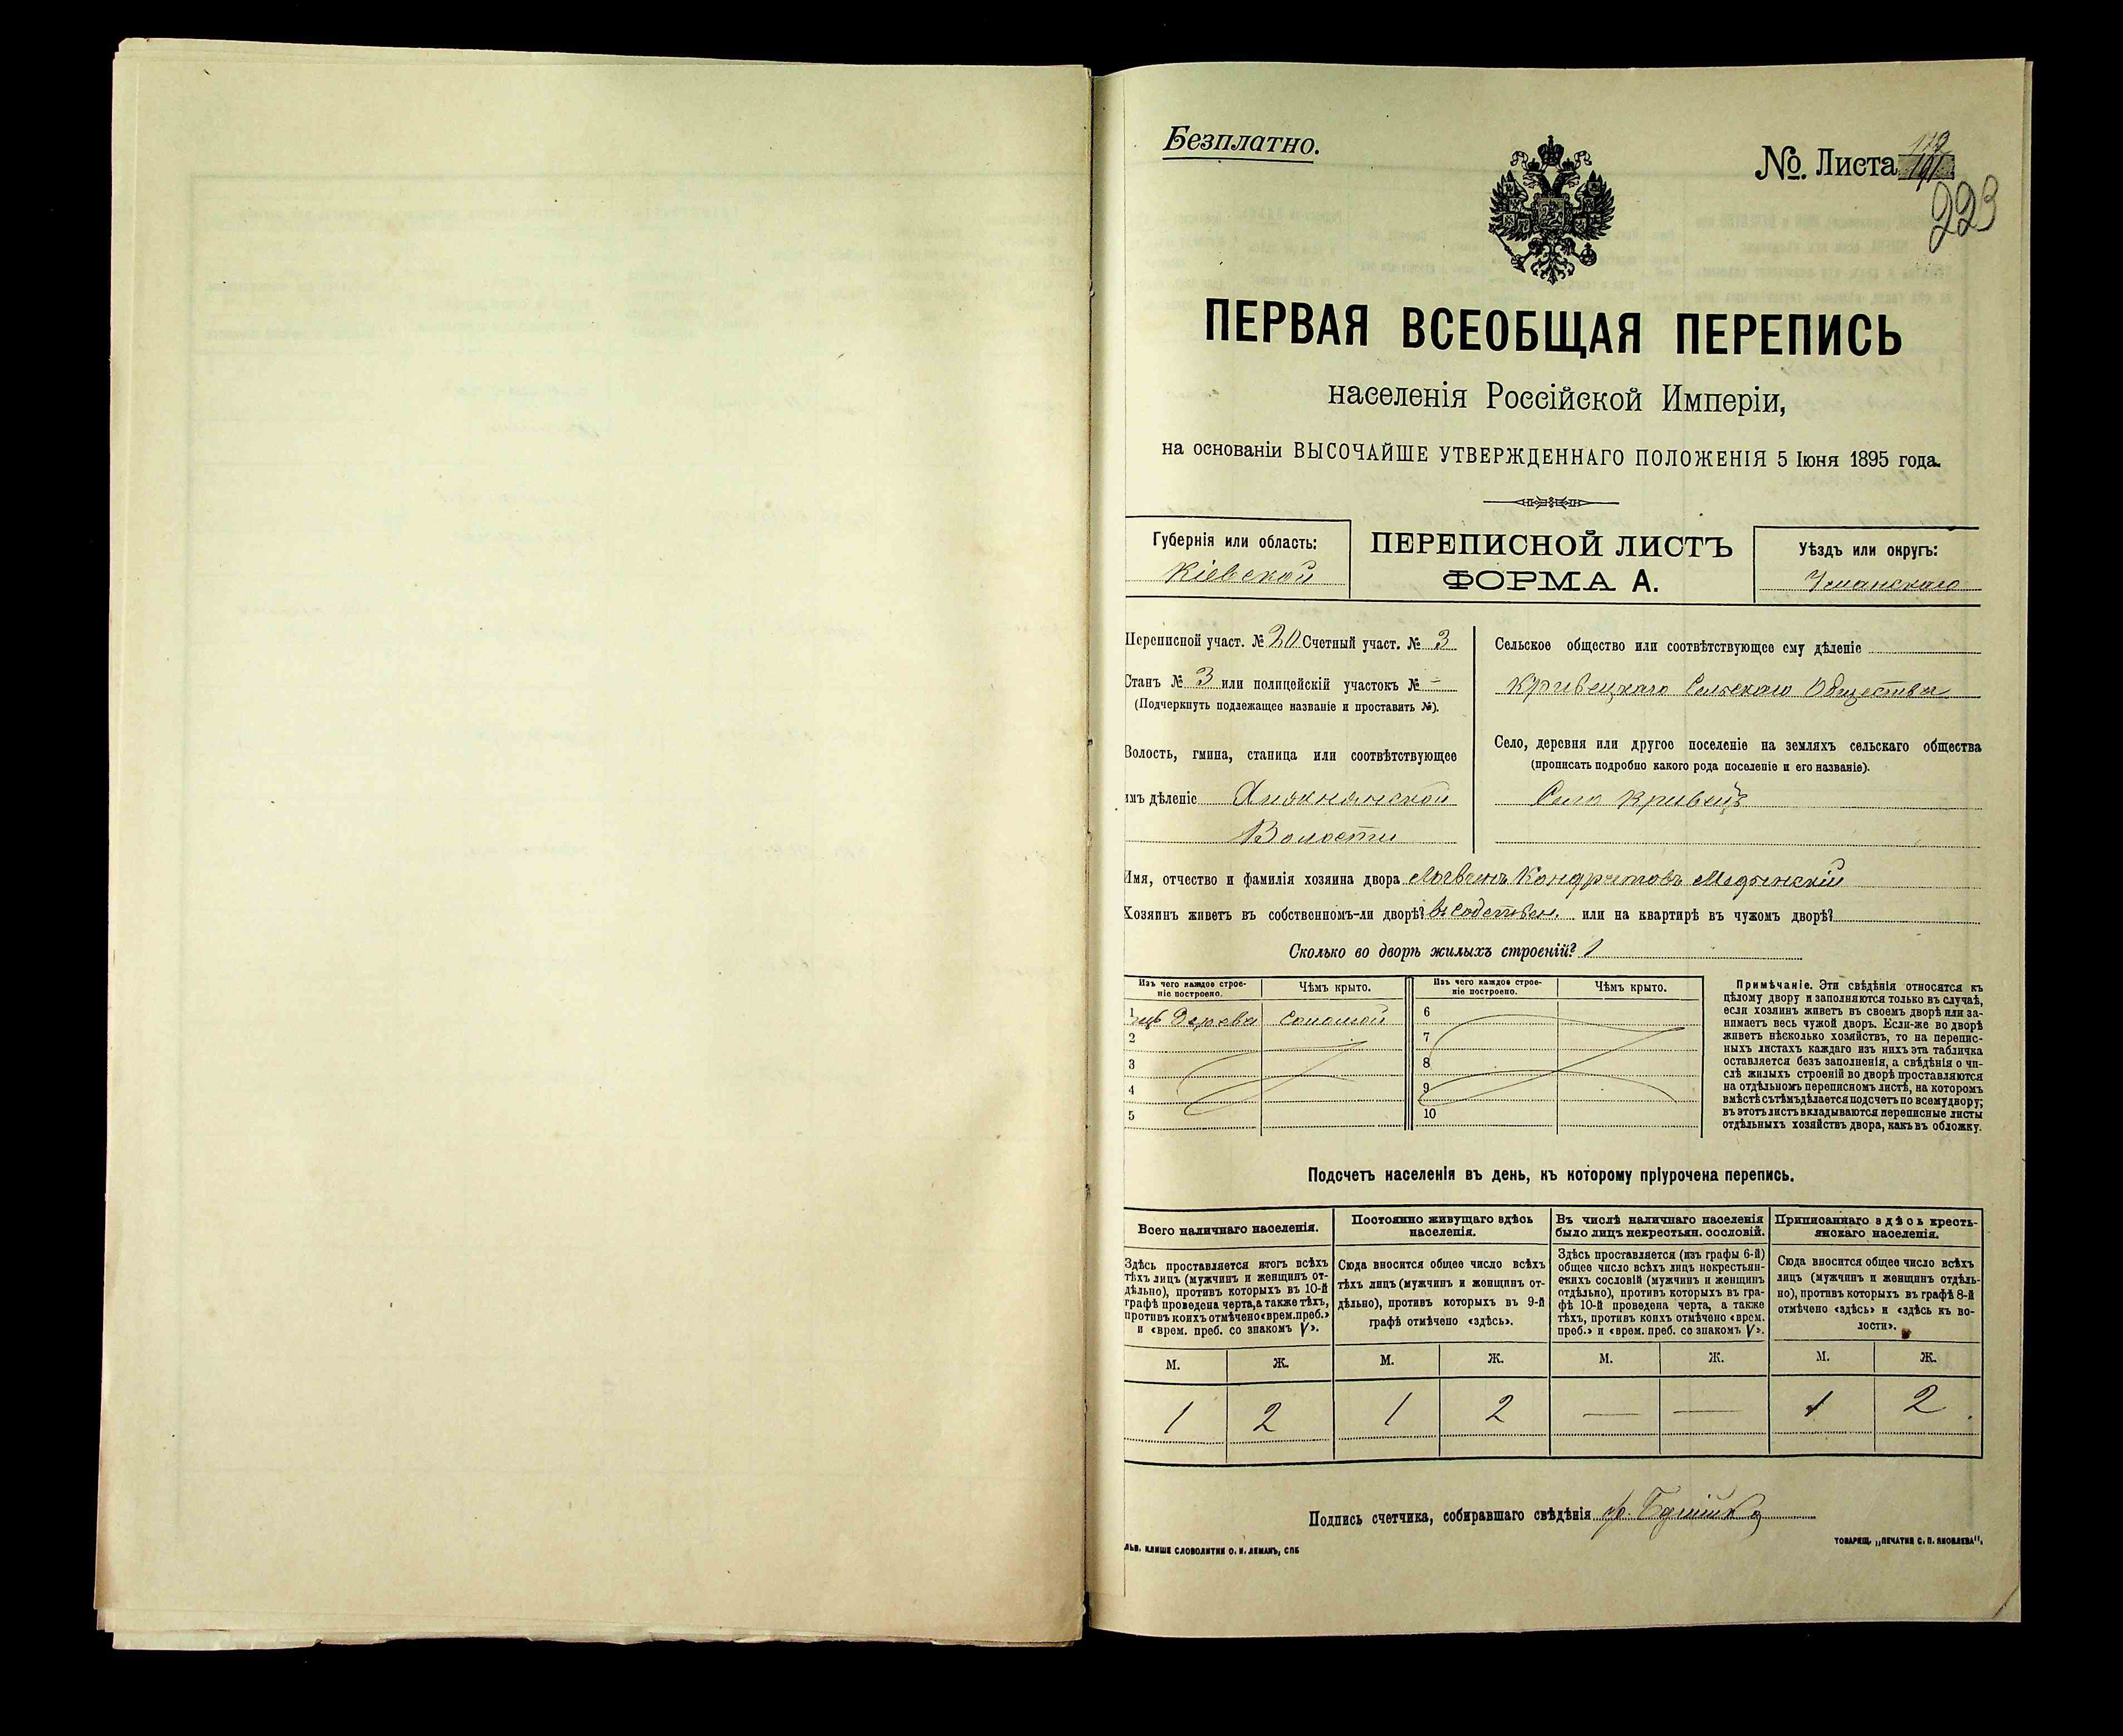 Безплатно.
№. Листа
223
ПЕРВАЯ ВСЕОБЩАЯ ПЕРЕПИСЬ
населенія Россійской Имперіи,
на основаніи ВЫСОЧАЙШЕ УТВЕРЖДЕННАГО ПОЛОЖЕНІЯ 5 Іюня 1895 года.
Губернія или область:
Кіевской
ПЕРЕПИСНОЙ ЛИСТЪ
ФОРМА А.
Уѣздъ или округъ:
Уманскаго
Переписной участ. № 20 Счетный участ. № 3
Станъ № 3 или полицейскій участокъ № –
(Подчеркнуть подлежащее названіе и проставить №).
Волость, гмина, станица или соотвѣтствующее
имъ дѣленіе
Волости
Сельское общество или соотвѣтствующее ему дѣленіе
Кривецкаго Сельскаго Общества
Село, деревня или другое поселеніе на земляхъ сельскаго общества
(прописать подробно какого рода поселеніе и его названіе).
Село Кривецъ
Имя, отчество и фамилія хозяина двора Логвинъ Кондратовъ Медынскій
Хозяинъ живетъ въ собственномъ-ли дворѣ? въ собствен. или на квартирѣ въ чужомъ дворѣ?
Сколько во дворѣ жилыхъ строеній? 1
Изъ чего каждое строе-
ніе построено.
Чѣмъ крыто.
1 изъ Дерева соломой
2
3
4
5
Изъ чего каждое строе-
ніе построено.
Чѣмъ крыто.
6
7
8
9
10
Примѣчаніе. Эти свѣдѣнія относятся къ
цѣлому двору и заполняются только въ случаѣ,
если хозяинъ живетъ въ своемъ дворѣ или за-
нимаетъ весь чужой дворъ. Если-же во дворѣ
живетъ нѣсколько хозяйствъ, то на перепис-
ныхъ листахъ каждаго изъ нихъ эта табличка
оставляется безъ заполненія, а свѣдѣнія о чи-
слѣ жилыхъ строеній во дворѣ проставляются
на отдѣльномъ переписномъ листѣ, на которомъ
вмѣстѣ съ тѣмъ дѣлается подсчетъ по всему двору;
въ этотъ листъ вкладываются переписные листы
отдѣльныхъ хозяйствъ двора, какъ въ обложку.
Подсчетъ населенія въ день, къ которому пріурочена перепись.
Всего наличнаго населенія.
Здѣсь проставляется итогъ всѣхъ
тѣхъ лицъ (мужчинъ и женщинъ от-
дѣльно), противъ которыхъ въ 10-й
графѣ проведена черта, а также тѣхъ,
противъ коихъ отмѣчено «врем. преб.»
и «врем. преб. со знакомъ V».
М. Ж.
1 2
Постоянно живущаго здѣсь
населенія.
Сюда вносится общее число всѣхъ
тѣхъ лицъ (мужчинъ и женщинъ от-
дѣльно), противъ которыхъ въ 9-й
графѣ отмѣчено «здѣсь».
М. Ж.
1 2
Въ числѣ наличнаго населенія
было лицъ некрестьян. сословій.
Здѣсь проставляется (изъ графы 6-й)
общее число всѣхъ лицъ некрестьян-
скихъ сословій (мужчинъ и женщинъ
отдѣльно), противъ которыхъ въ гра-
фѣ 10-й проведена черта, а также
тѣхъ, противъ коихъ отмѣчено «врем.
преб.» и «врем. преб. со знакомъ V».
М. Ж.
— —
Приписаннаго здѣсь кресть-
янскаго населенія.
Сюда вносится общее число всѣхъ
лицъ (мужчинъ и женщинъ отдѣль-
но), противъ которыхъ въ графѣ 8-й
отмѣчено «здѣсь» и «здѣсь къ во-
лости».
М. Ж.
1 2
Подпись счетчика, собиравшаго свѣдѣнія
КЛИШЕ СЛОВОЛИТНИ О. И. ЛЕМАНЪ, СПБ
ТОВАРИЩ. „ПЕЧАТНЯ С. П. ЯКОВЛЕВА“.